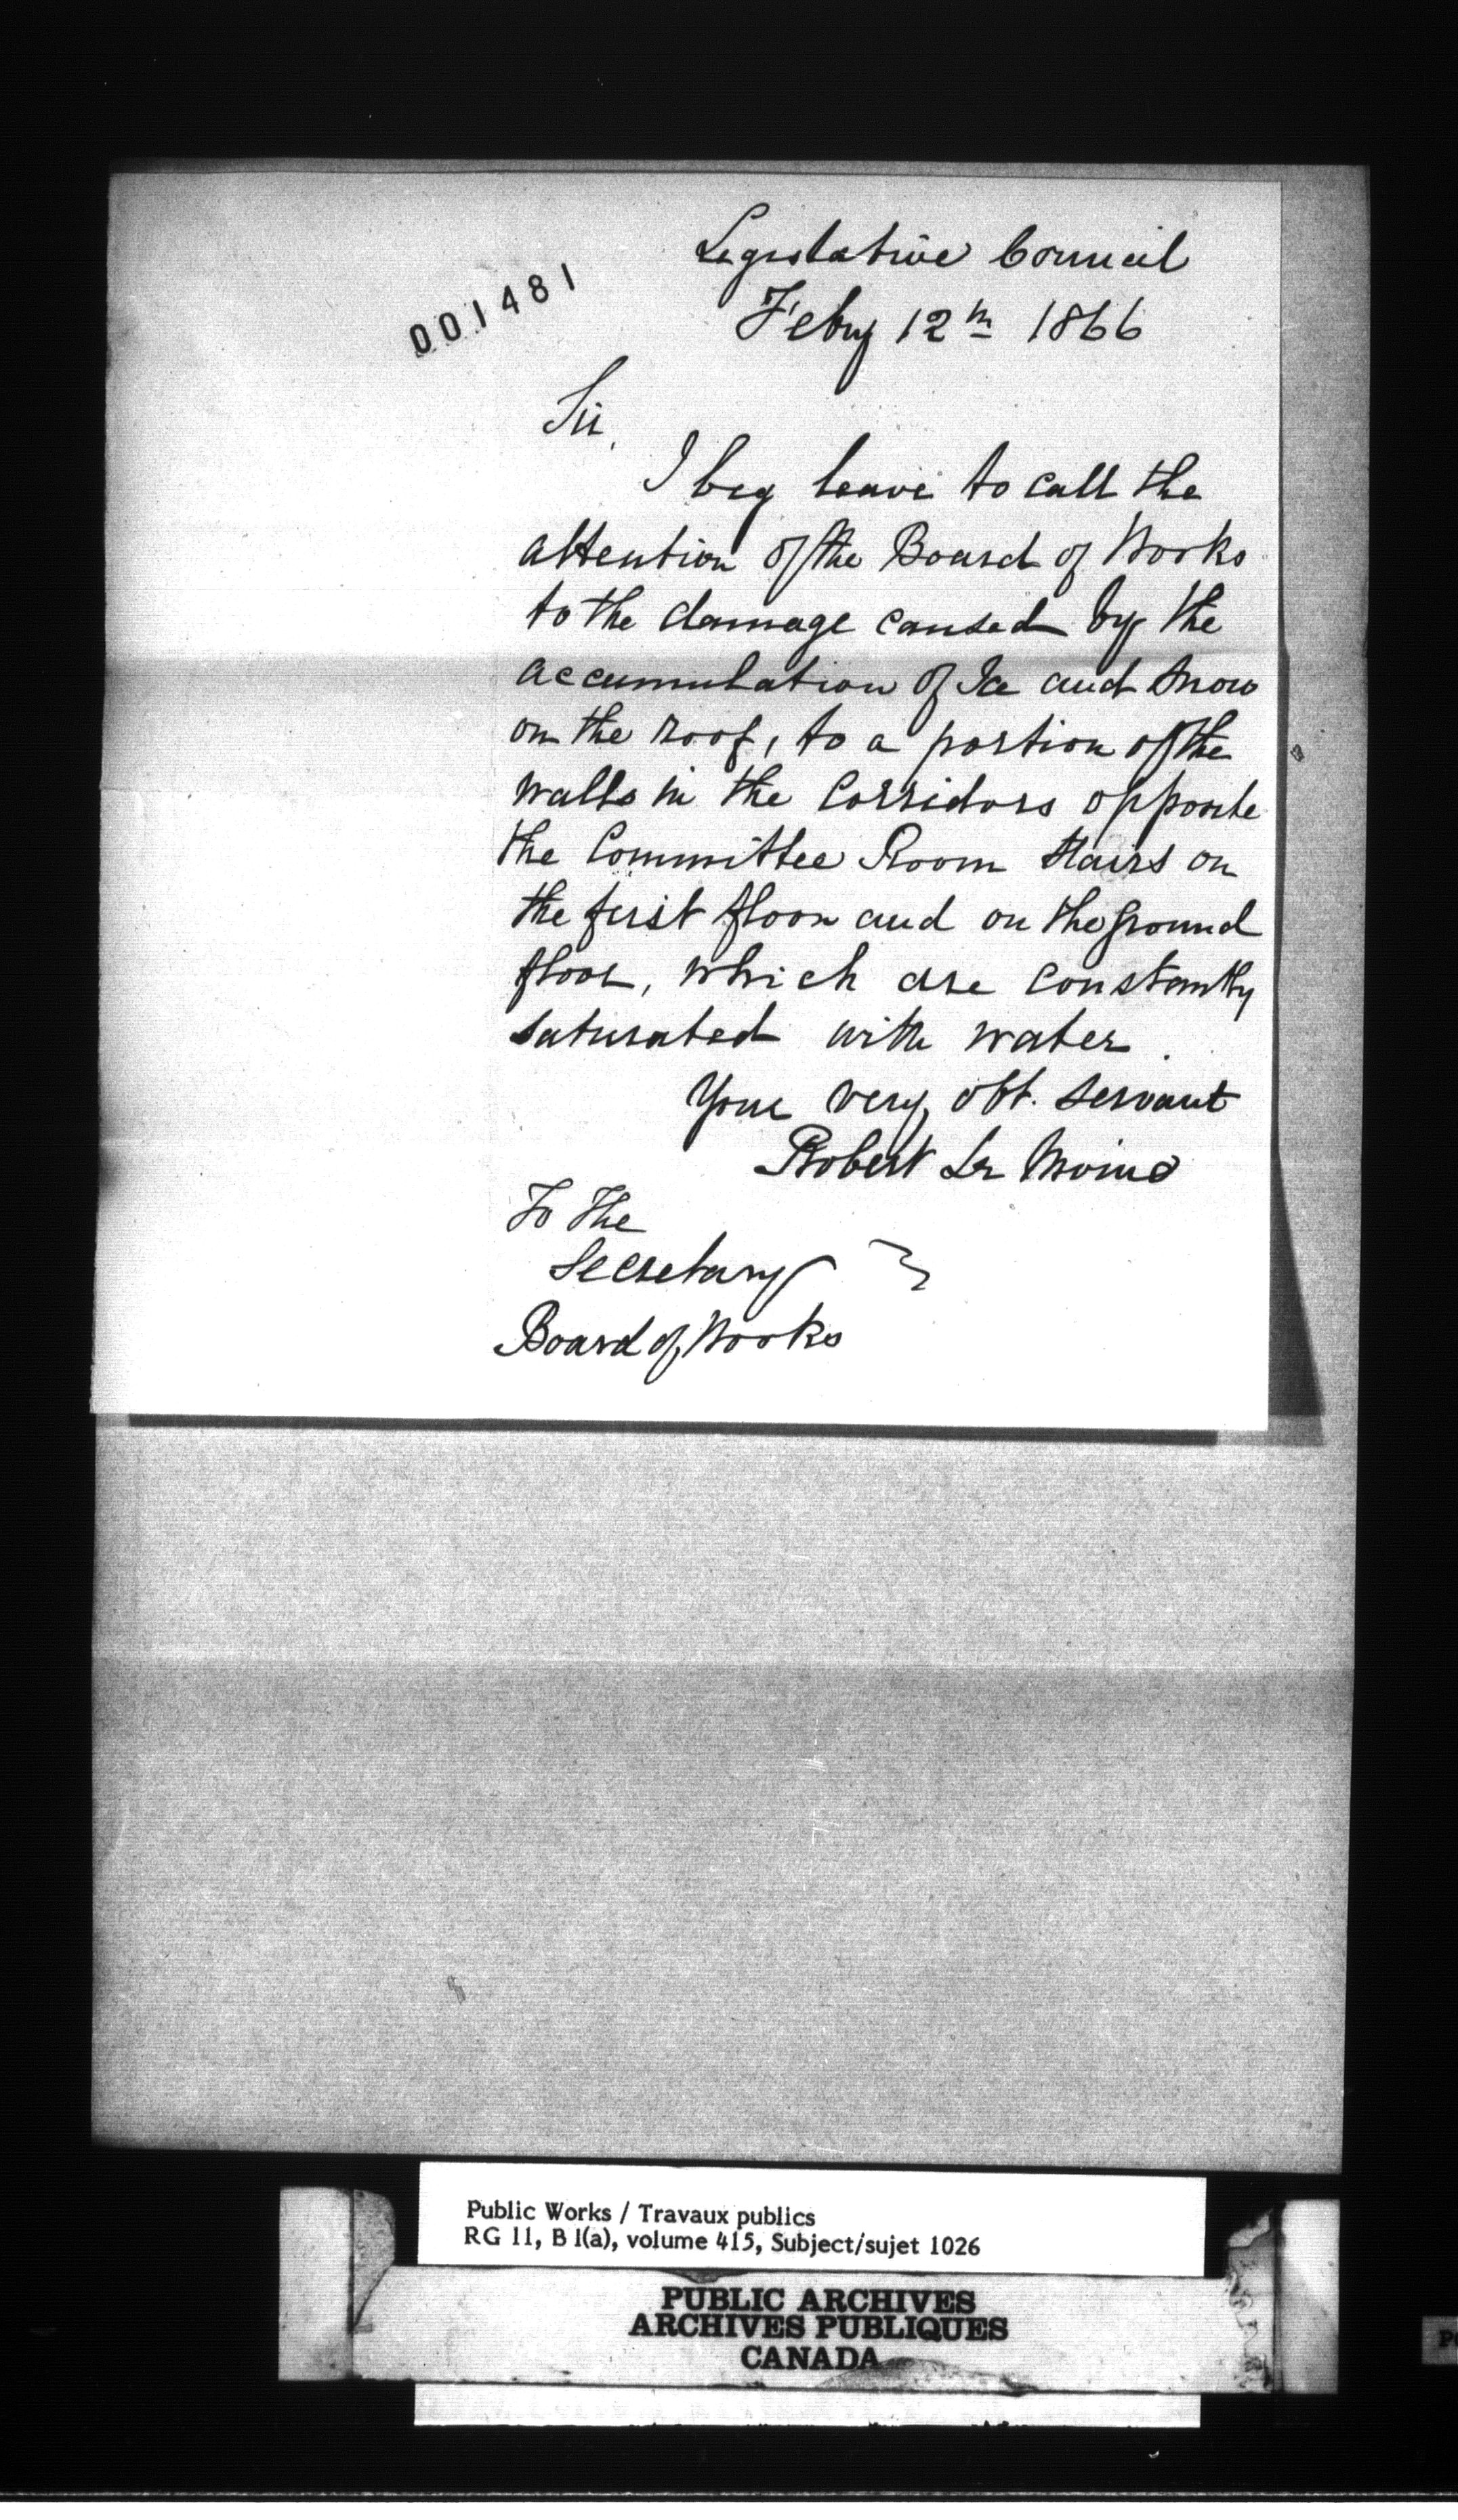 001481
Legislative Council
Feby 12th 1866
Sir,
I beg leave to call the
attention of the Board of Works
to the damage caused by the
accumulation of Ice and Snow
on the roof, to a portion of the
walls in the Corridors opposite
the Committee Room Stairs on
the first floor and on the ground
floor, which are constantly
saturated with water.
Your very obt. servant
Robert Le Moine
To The
Secretary
Board of Works
Public Works / Travaux publics
RG 11, B 1(a), volume 415, Subject/sujet 1026
PUBLIC ARCHIVES
ARCHIVES PUBLIQUES
CANADA